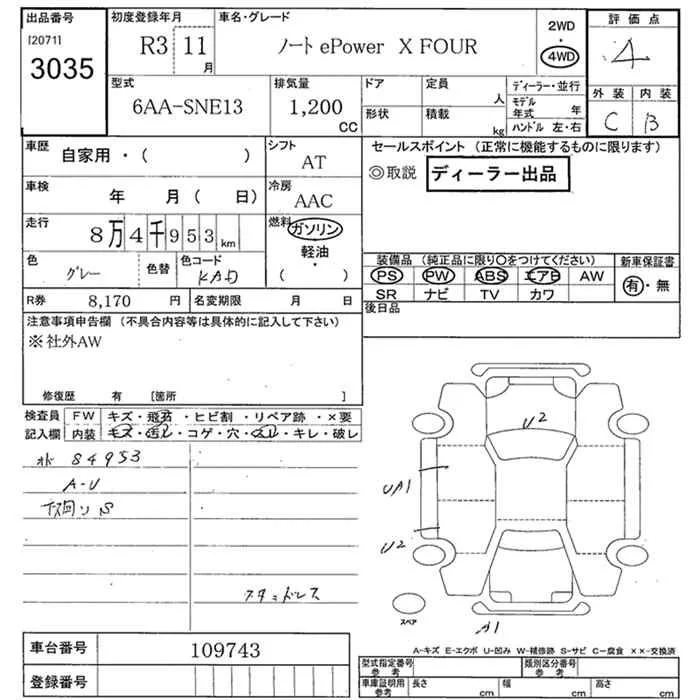 出品番号 初度登録年月 車名・グレード 評価点
[20711] 3035
R3 11月 ノート ePower X FOUR 2WD ・ 4WD 4
型式 排気量 ドア 定員 人 ディーラー・並行 外装 内装
6AA-SNE13 1,200 CC 形状 積載 kg モデル年式 年 ハンドル 左・右 C B
車歴 自家用・( ) シフト AT セールスポイント (正常に機能するものに限ります)
◎取説 ディーラー出品
車検 年 月 ( 日) 冷房 AAC
走行 8万4千953km 燃料 ガソリン・軽油・( )
色 グレー 色替 色コード KAD
装備品 (純正品に限り○をつけてください) 新車保証書
PS PW ABS エアB AW 有・無
SR ナビ TV カワ
R券 8,170 円 名変期限 月 日
後日品
注意事項申告欄 (不具合内容等は具体的に記入して下さい)
※社外AW
修復歴 有 [箇所 ]
検査員 FW キズ・飛石・ヒビ割・リペア跡・×要
記入欄 内装 キズ・汚レ・コゲ・穴・スレ・キレ・破レ
84953
A-U
スタッドレス
U2
UA1
U2
A1
スペア
A-キズ E-エクボ U-凹み W-補修跡 S-サビ C-腐食 ××-交換済
車台番号 109743
登録番号
型式指定番号 参考 類別区分番号 参考
車庫証明用 参考 長さ cm 幅 cm 高さ cm